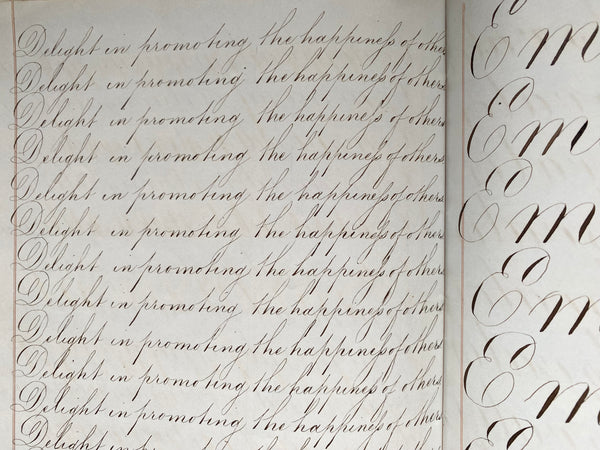 Delight in promoting the happiness of others
Delight in promoting the happiness of others
Delight in promoting the happiness of others
Delight in promoting the happiness of others
Delight in promoting the happiness of others
Delight in promoting the happiness of others
Delight in promoting the happiness of others
Delight in promoting the happiness of others
Delight in promoting the happiness of others
Delight in promoting the happiness of others
Delight in promoting the happiness of others
Delight in promoting the happiness of others
Em
Em
Em
Em
Em